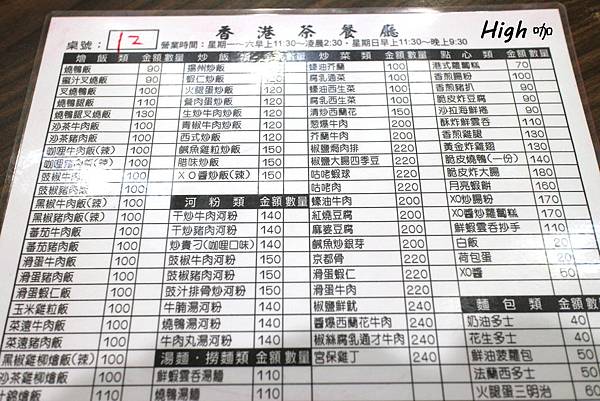 香港茶餐廳
High 吵
桌號： 12 營業時間：星期一～六早上11:30～凌晨2:30，星期日早上11:30～晚上9:30
燴飯類 金額 數量
燒鴨飯 90
蜜汁叉燒飯 90
叉燒鴨飯 100
燒鴨腿飯 110
沙茶牛肉飯 100
沙茶豬肉飯 100
咖哩牛肉飯(辣) 100
咖哩豬肉飯(辣) 100
豉椒牛肉飯 100
豉椒豬肉飯 100
黑椒牛肉飯(辣) 100
黑椒豬肉飯(辣) 100
蕃茄牛肉飯 100
蕃茄豬肉飯 100
滑蛋牛肉飯 100
滑蛋豬肉飯 100
滑蛋蝦仁飯 100
玉米雞粒飯 100
菜遠牛肉飯 100
菜遠豬肉飯 100
黑椒雞柳燴飯(辣) 100
沙茶雞柳燴飯 100
炒飯 金額 數量
揚州炒飯
蝦仁炒飯 120
火腿蛋炒飯 120
鴛肉蛋炒飯 120
生炒牛肉炒飯 120
青椒牛肉炒飯 120
西式炒飯 120
鹹魚雞粒炒飯 150
腊味炒飯 150
ＸＯ醬炒飯(辣) 150
河粉類 金額 數量
干炒牛肉河粉 140
干炒豬肉河粉 140
炒貴刁(咖哩口味) 140
豉椒牛肉河粉 150
豉椒豬肉河粉 150
豉汁排骨炒河粉 150
牛腩湯河粉 140
燒鴨湯河粉 140
牛肉丸湯河粉 140
湯麵．撈麵類 金額 數量
鮮蝦雲吞湯麵 110
燒鴨湯麵 110
炒菜類 金額 數量
蠔油芥蘭 100
腐乳通菜 100
蠔油西生菜 100
腐乳西生菜 100
清炒西蘭花 150
蔥爆牛肉 200
芥蘭牛肉 200
椒鹽焗肉排 200
椒鹽大腸四季豆 220
咕咾蝦球 220
咕咾肉 220
蠔油牛肉 200
紅燒豆腐 200
麻婆豆腐 200
鹹魚炒銀芽 200
京都骨 220
滑蛋蝦仁 220
滑蛋牛肉 220
椒鹽鮮魷 240
醬爆西蘭花牛肉 240
椒絲腐乳通才牛肉 240
宮保雞丁 240
點心類 金額 數量
港式蘿蔔糕 70
香煎腸粉 100
香煎豬扒 90
脆皮炸豆腐 90
沙拉海鮮捲 90
酥炸鮮雲吞 110
香煎雞腿 130
黃金炸雞翅 130
脆皮燒鴨(一份) 140
脆皮炸大腸 180
月亮蝦餅 160
XO炒腸粉 150
XO醬炒蘿蔔糕 150
鮮蝦雲吞抄手 110
白飯 20
荷包蛋 20
XO醬 50
麵包類 金額
奶油多士 40
花生多士 40
鮮油菠蘿包 50
法蘭西多士 50
火腿蛋三明治 60